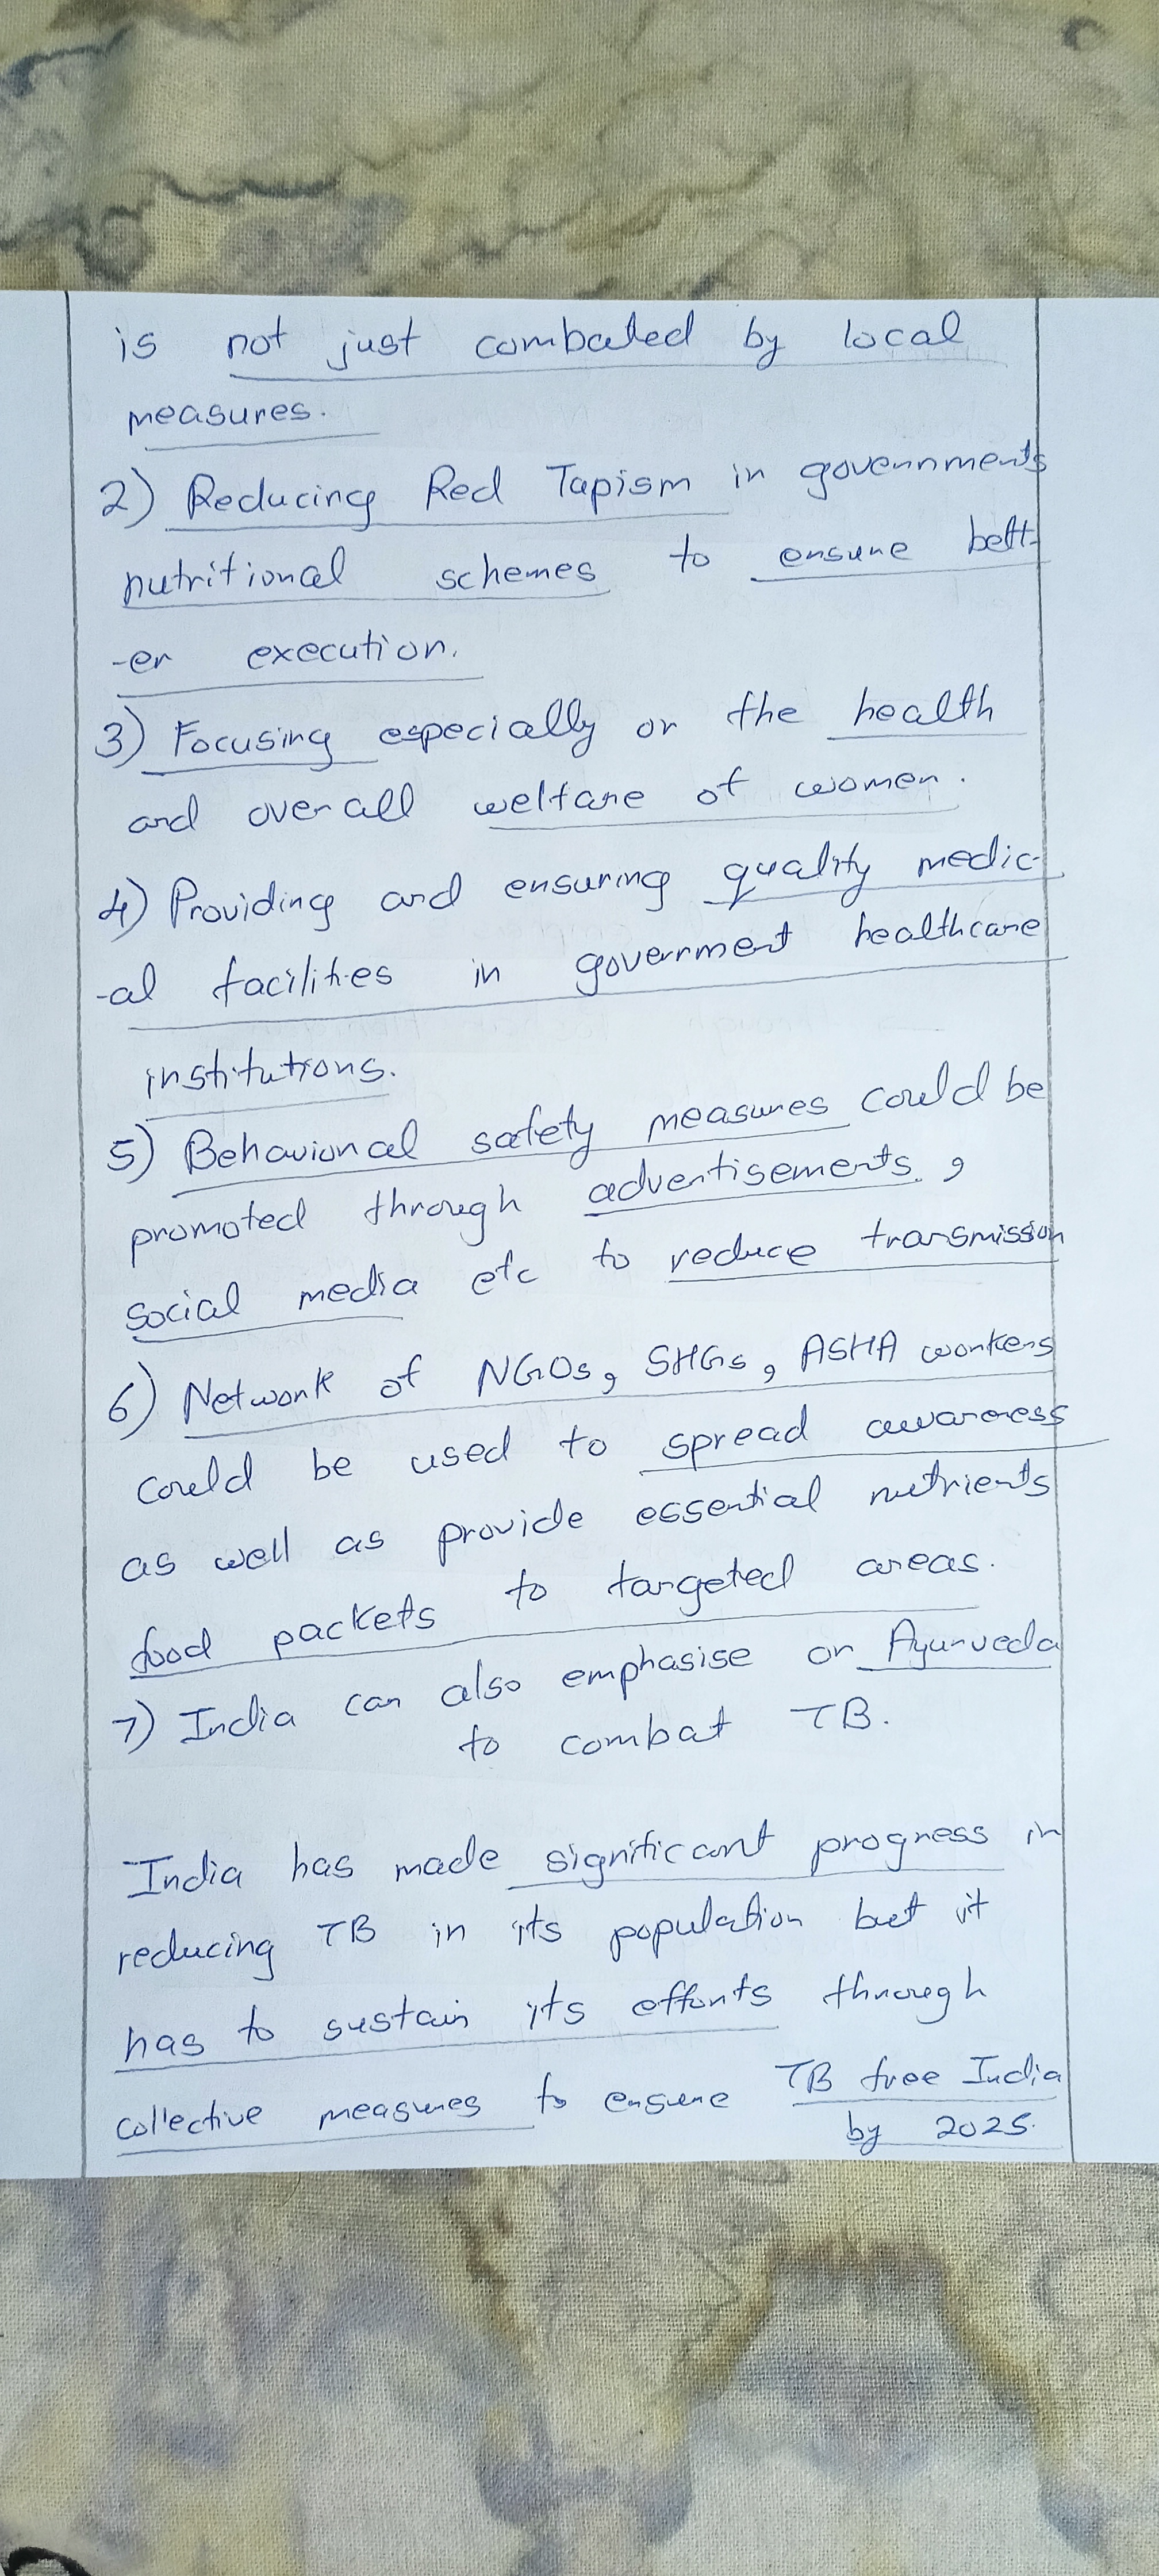 is not just combated by local
measures.
2) Reducing Red Tapism in governments
nutritional schemes to ensure bett-
-er execution.
3) Focusing especially on the health
and overall welfare of women.
4) Providing and ensuring quality medic-
-al facilities in government healthcare
institutions.
5) Behavioral safety measures could be
promoted through advertisements,
social media etc to reduce transmission
6) Network of NGOs, SHGs, ASHA workers
could be used to spread awareness
as well as provide essential nutrients
food packets to targeted areas.
7) India can also emphasise on Ayurveda
to combat TB.
India has made significant progress in
reducing TB in its population but it
has to sustain its efforts through
collective measures to ensure TB free India
by 2025.